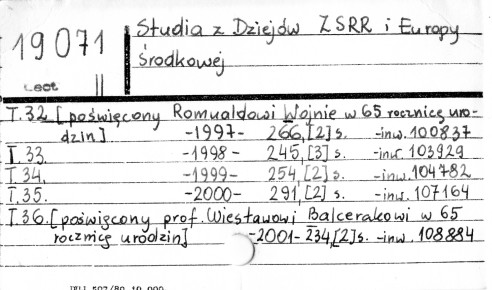 19071
Lect II
Studia z Dziejów ZSRR i Europy
Środkowej
T.32 [poświęcony Romualdowi Wojnie w 65 rocznicę uro-
dzin] -1997- 266,[2] s. -inw. 100837
T.33. -1998- 245,[3] s. -inw. 103929
T.34. -1999- 254,[2] s. -inw. 104782
T.35. -2000- 291,[2] s. -inw. 107164
T.36. [poświęcony prof. Wiesławowi Balcerakowi w 65
rocznicę urodzin] -2001- 234,[2] s. -inw. 108884